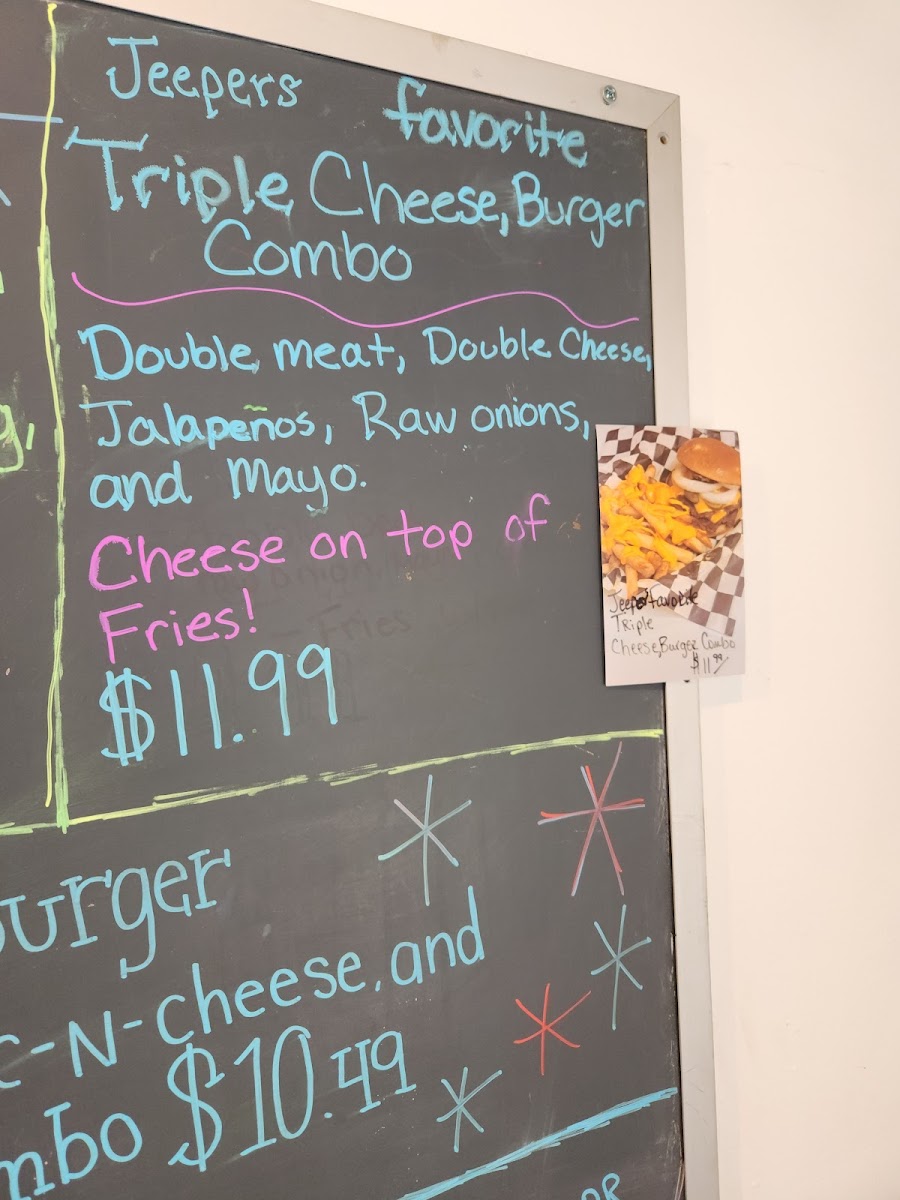 Jeepers favorite
Triple Cheese, Burger
Combo
Double meat, Double Cheese,
Jalapeños, Raw onions,
and Mayo.
Cheese on top of
Fries!
$11.99
Jeepers Favorite
Triple
Cheese,Burger Combo
$11.99
g,
burger
c-N-cheese, and
mbo $10.49
OR